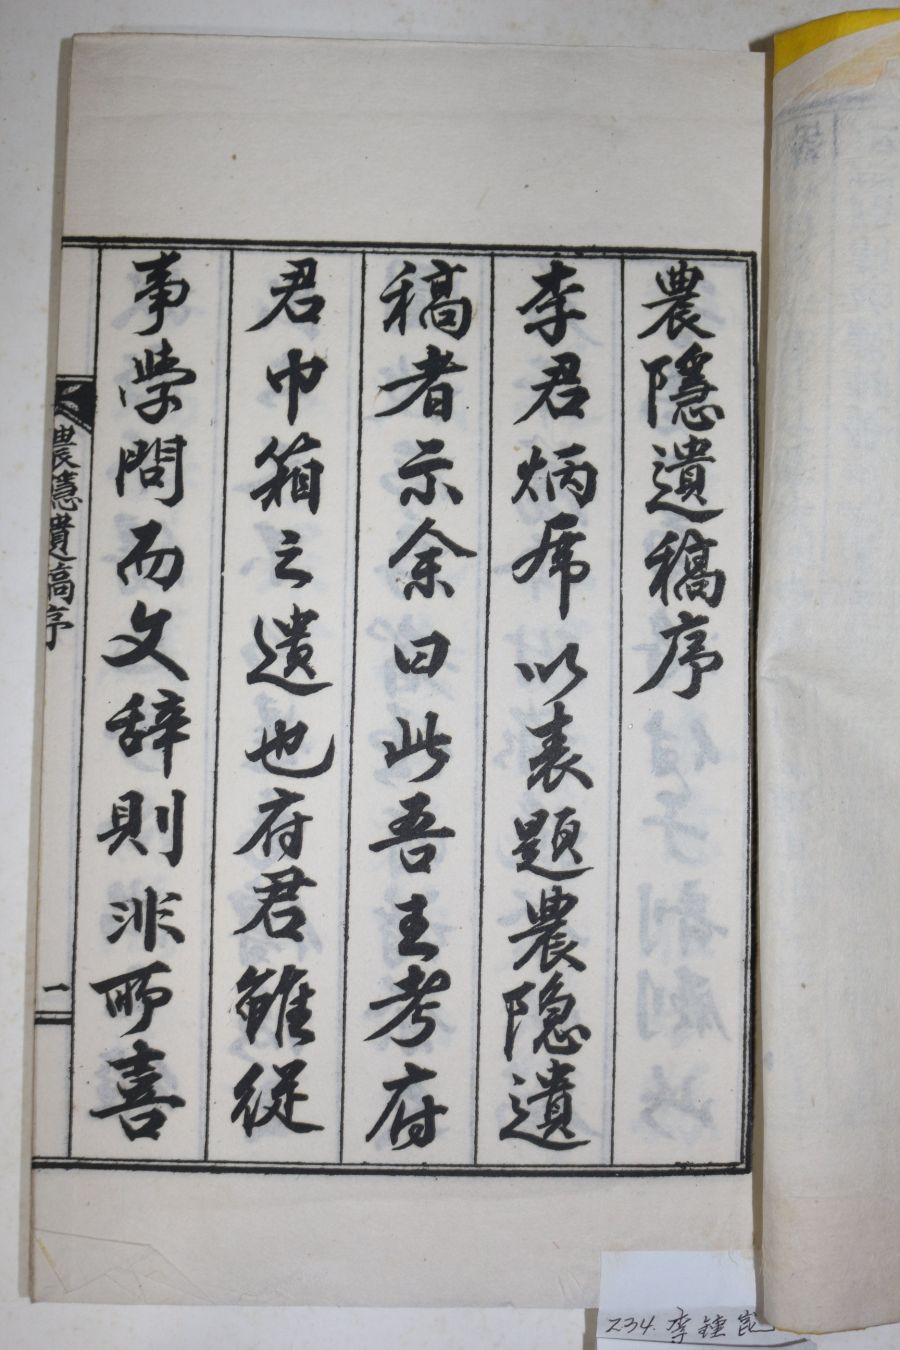 農隱遺稿序
李君炳席以表題農隱遺
稿者示余曰此吾王考府
君巾箱之遺也府君雖從
事學問而文辞則非所喜
農隱遺稿序
一
234. 李鍾